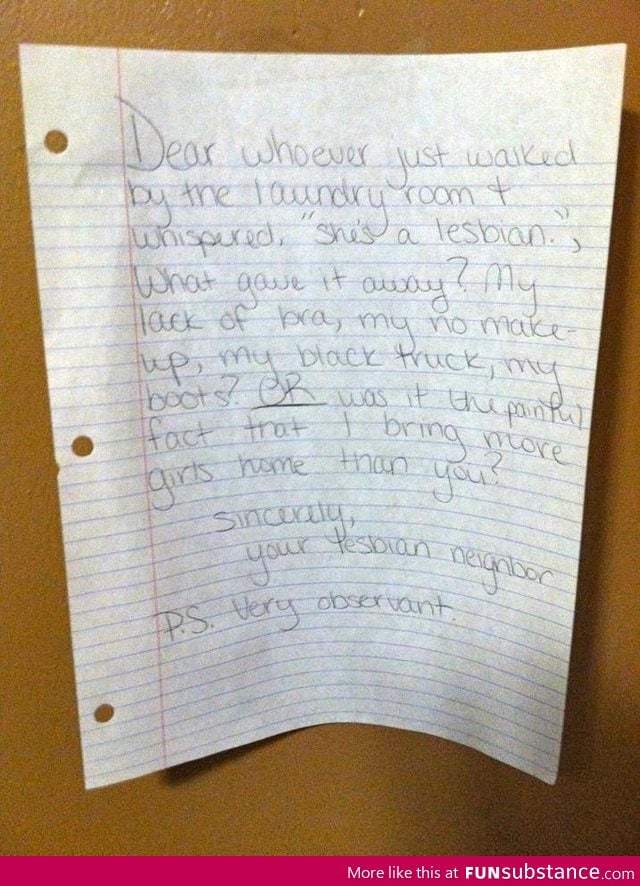 Dear whoever just walked
by the laundry room +
whispered, "she's a lesbian.",
What gave it away? My
lack of bra, my no make-
up, my black truck, my
boots? OR was it the painful
fact that I bring more
girls home than you?
sincerely,
your lesbian neighbor
P.S. very observant.
More like this at FUNsubstance.com